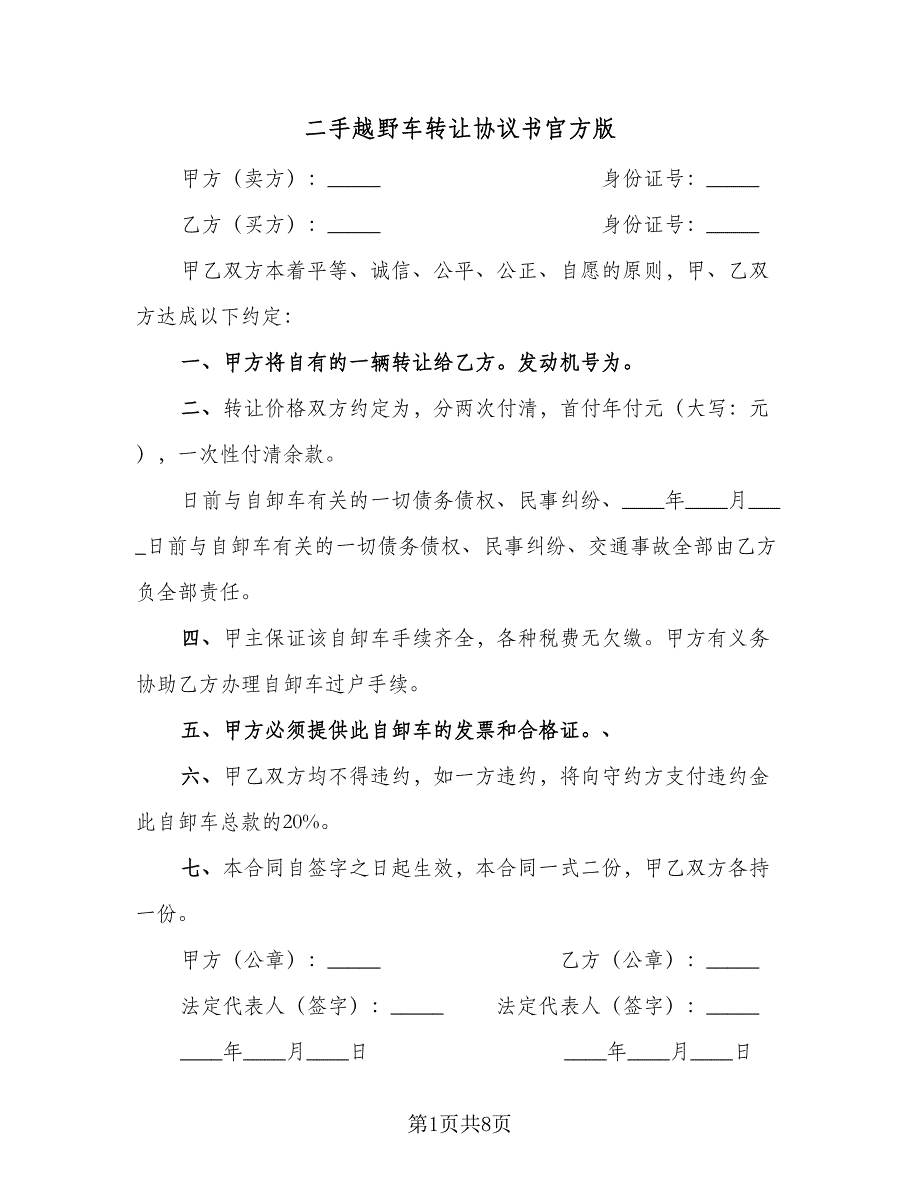 二手越野车转让协议书官方版
甲方（卖方）：_____ 身份证号：_____
乙方（买方）：_____ 身份证号：_____
甲乙双方本着平等、诚信、公平、公正、自愿的原则，甲、乙双
方达成以下约定：
一、甲方将自有的一辆转让给乙方。发动机号为。
二、转让价格双方约定为，分两次付清，首付年付元（大写：元
），一次性付清余款。
日前与自卸车有关的一切债务债权、民事纠纷、____年____月___
_日前与自卸车有关的一切债务债权、民事纠纷、交通事故全部由乙方
负全部责任。
四、甲主保证该自卸车手续齐全，各种税费无欠缴。甲方有义务
协助乙方办理自卸车过户手续。
五、甲方必须提供此自卸车的发票和合格证。、
六、甲乙双方均不得违约，如一方违约，将向守约方支付违约金
此自卸车总款的20%。
七、本合同自签字之日起生效，本合同一式二份，甲乙双方各持
一份。
甲方（公章）：_____ 乙方（公章）：_____
法定代表人（签字）：_____ 法定代表人（签字）：_____
____年____月____日 ____年____月____日
第1页共8页